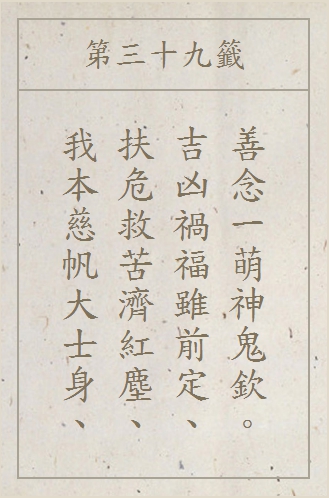 第三十九籤
我本慈帆大士身、
扶危救苦濟紅塵、
吉凶禍福雖前定、
善念一萌神鬼欽。